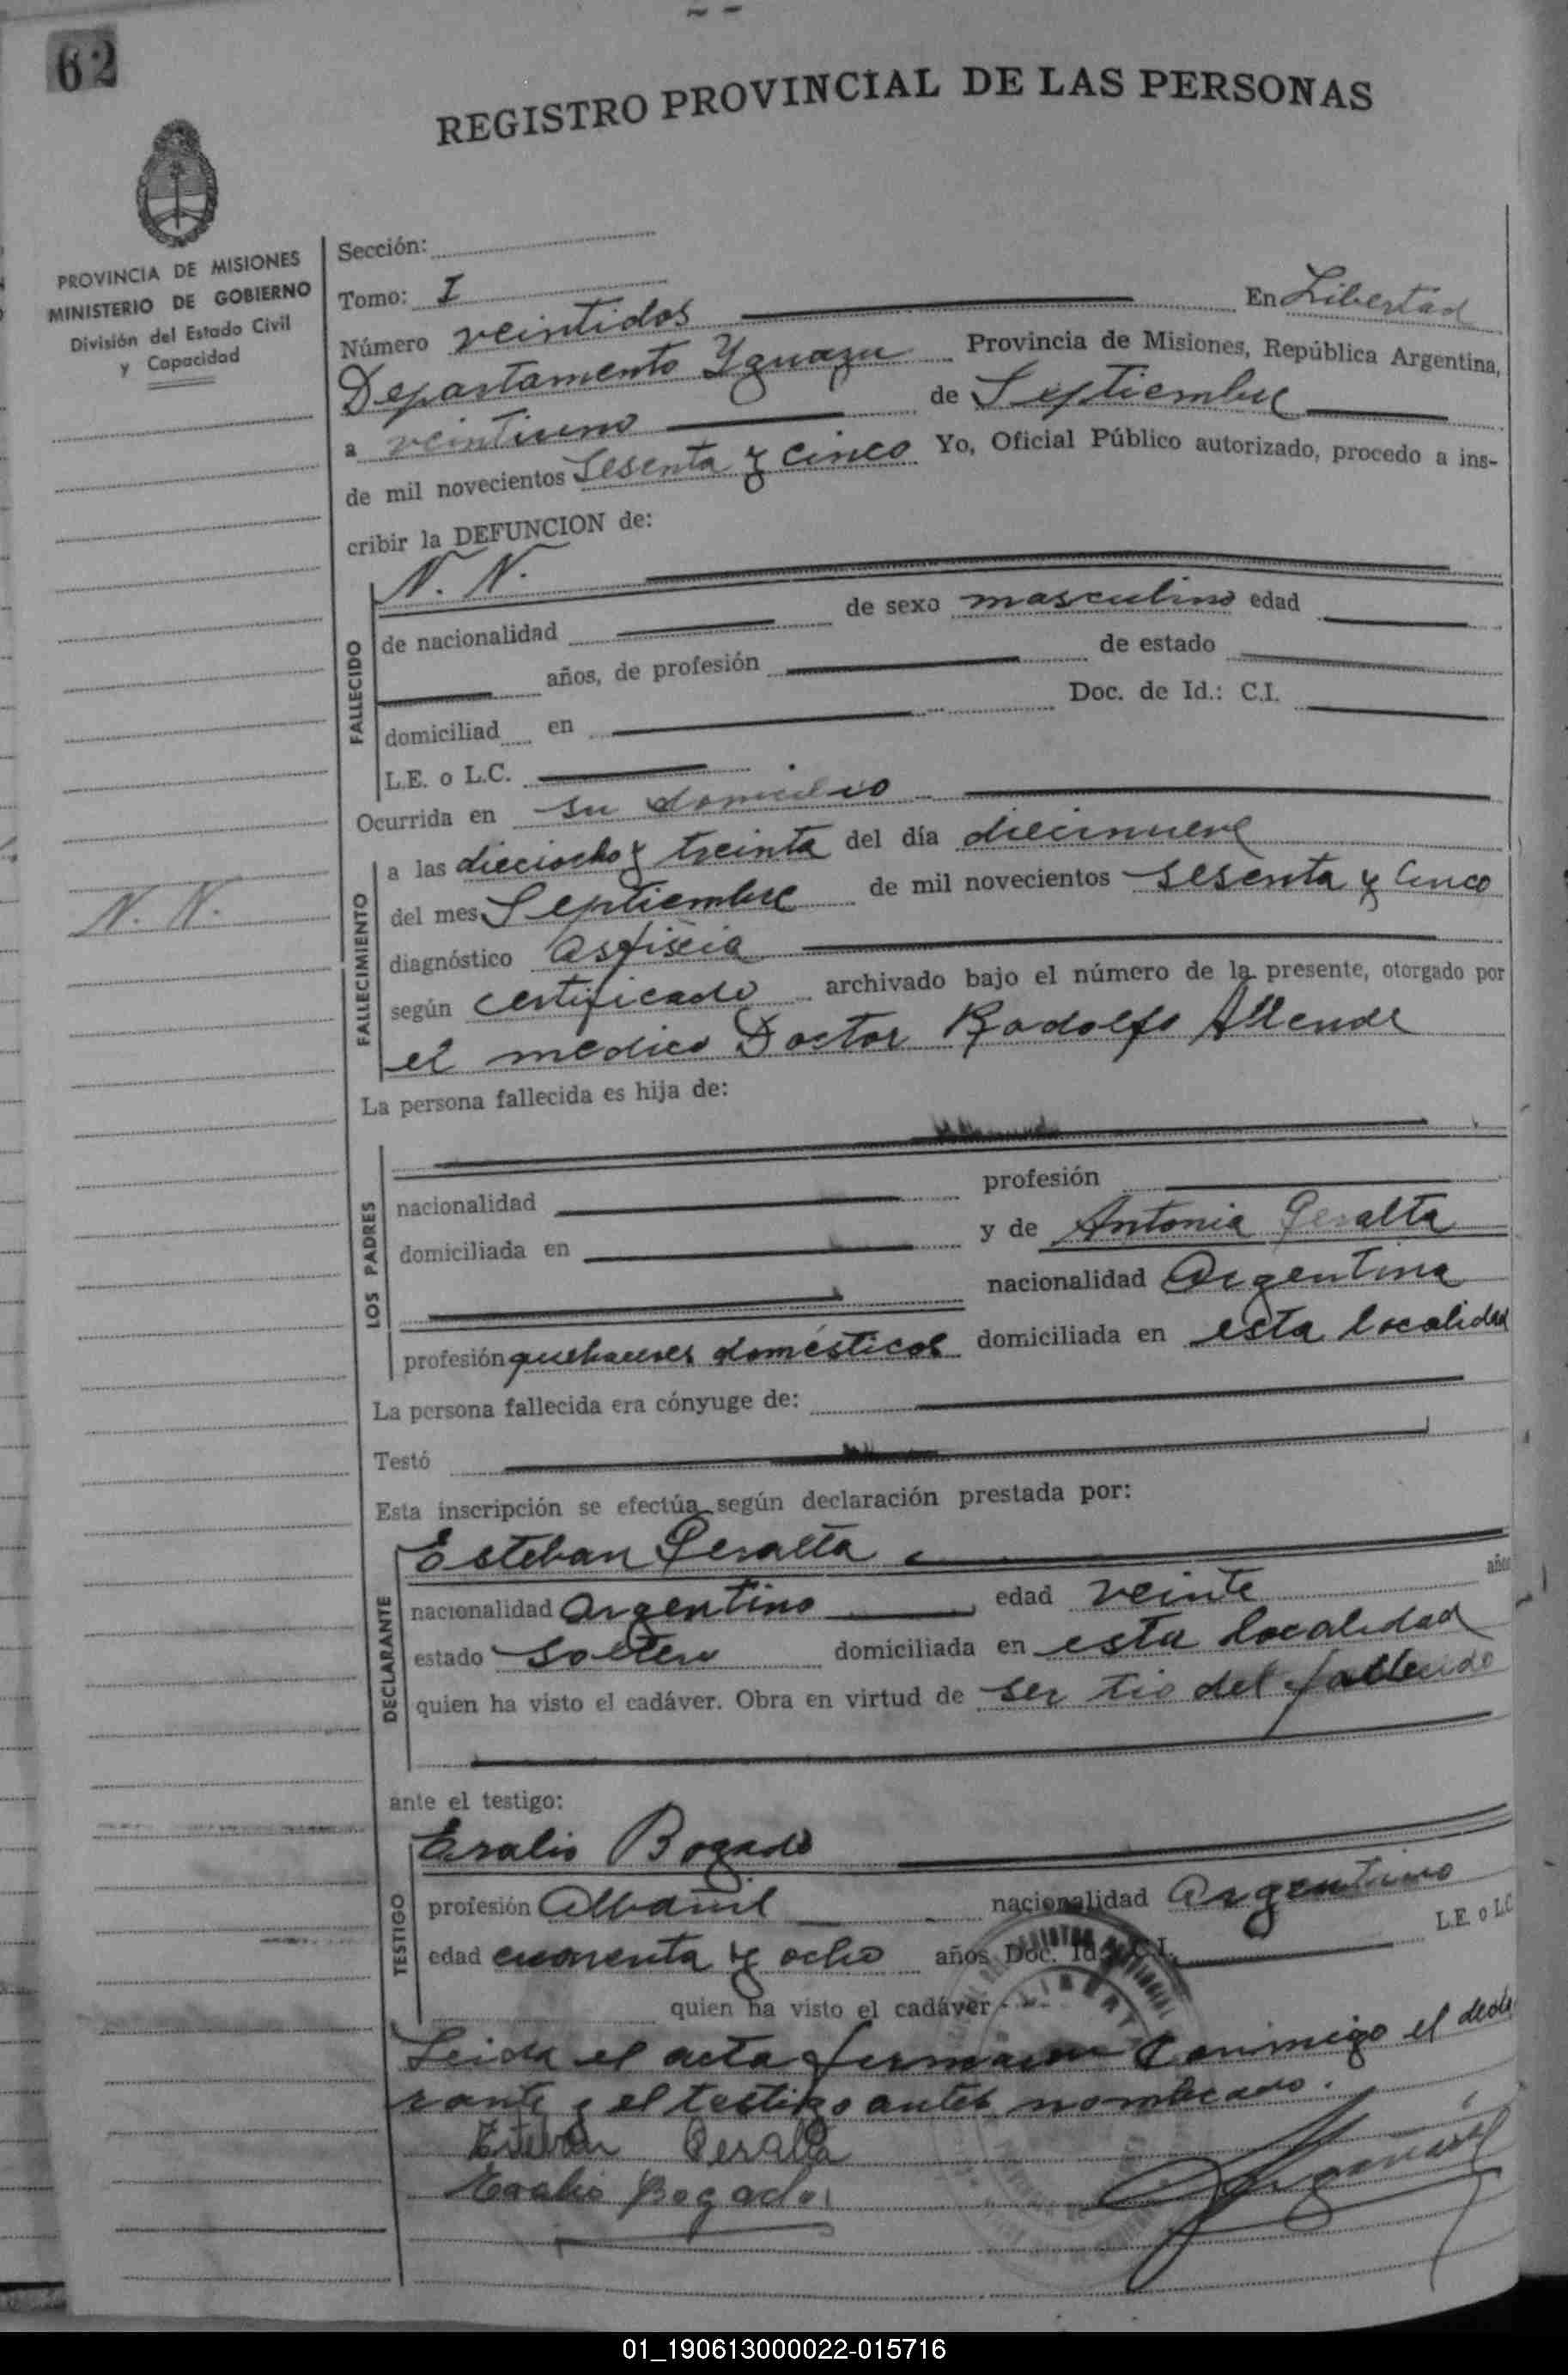 62
REGISTRO PROVINCIAL DE LAS PERSONAS
PROVINCIA DE MISIONES
MINISTERIO DE GOBIERNO
División del Estado Civil
y Capacidad
Sección:
Tomo: I
Número veintidos En Libertad
Departamento Yguazu Provincia de Misiones, República Argentina,
a veintiuno de Septiembre
de mil novecientos Sesenta y Cinco Yo, Oficial Público autorizado, procedo a ins-
cribir la DEFUNCION de:
FALLECIDO
N. N.
de nacionalidad de sexo masculino edad
años, de profesión de estado
domiciliad en Doc. de Id.: C.I.
L.E. o L.C.
Ocurrida en su domicilio
FALLECIMIENTO
a las dieciocho y treinta del día diecinueve
del mes Septiembre de mil novecientos sesenta y Cinco
N. N.
diagnóstico asfixia
según certificado archivado bajo el número de la presente, otorgado por
el medico Doctor Rodolfo Allende
La persona fallecida es hija de:
LOS PADRES
nacionalidad profesión
domiciliada en y de Antonia Peralta
nacionalidad Argentina
profesión quehaceres domésticos domiciliada en esta localidad
La persona fallecida era cónyuge de:
Testó
Esta inscripción se efectúa según declaración prestada por:
DECLARANTE
Esteban Peralta
nacionalidad argentino edad veinte años
estado soltero domiciliada en esta localidad
quien ha visto el cadáver. Obra en virtud de ser tio del fallecido
ante el testigo:
TESTIGO
Eralio Bogado
profesión Albañil nacionalidad Argentino
edad cuarenta y ocho años Doc. Id.: C.I. L.E. o L.C
quien ha visto el cadáver
Leida el acta firman Conmigo el decla
rante y el testigo antes nombrado.
Esteban Peralta
Eralio Bogado
01_190613000022-015716